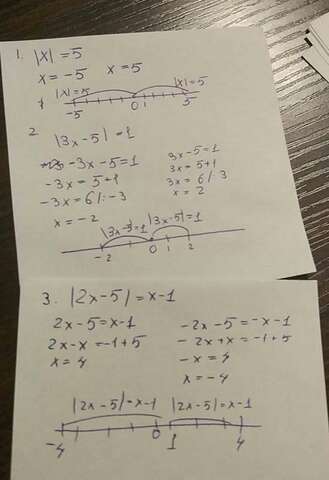 1. |x| = 5
x = -5    x = 5
|x| = 5    |x| = 5
-5    0 1    5
2
|3x-5| = 1
-3x-5=1    3x-5=1
-3x = 5+1    3x = 5+1
-3x = 6 /: -3    3x = 6 /: 3
x = -2    x = 2
|3x-5|=1    |3x-5|=1
-2    0 1 2
3. |2x-5| = x-1
2x-5=x-1    -2x-5=-x-1
2x-x=-1+5    -2x+x=-1+5
x = 4    -x = 4
x = -4
|2x-5|=x-1    |2x-5|=x-1
-4    0 1    4